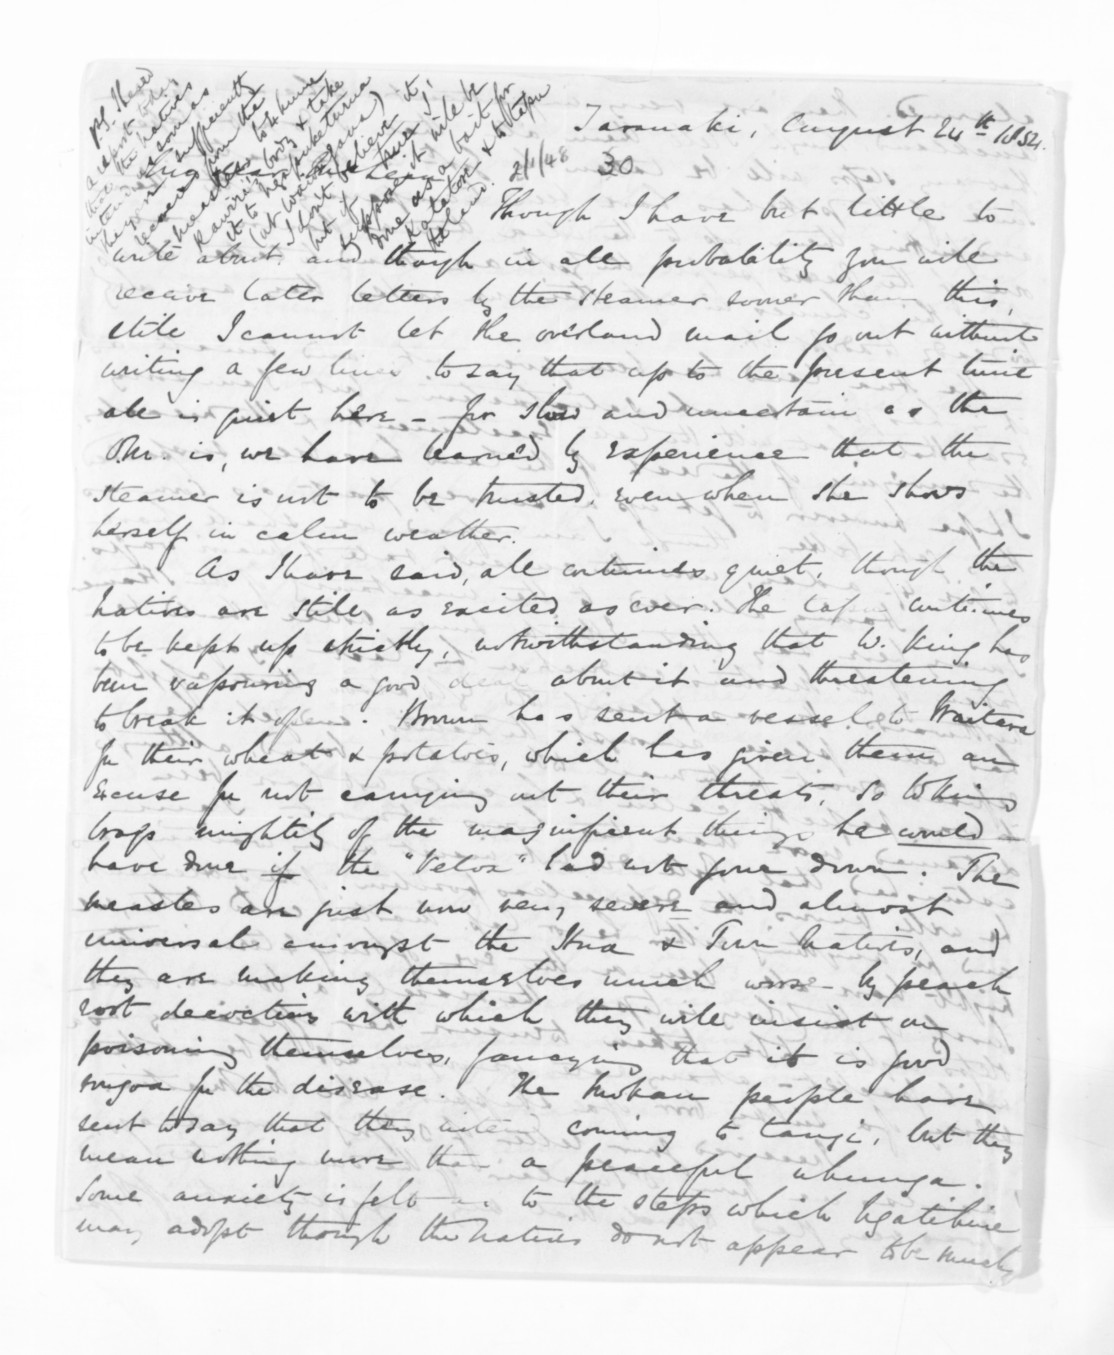 Taranaki, August 24th 1854.
30
Though I have but little to
write about and though in all probability you will
receive later letters by the steamer sooner than this,
still I cannot let the overland mail go out without
writing a few lines to say that up to the present time
all is quiet here - for slow and uncertain as the
O.M. is, we have learned by experience that the
steamer is not to be trusted, even when she shows
herself in calm weather.
As I have said, all continues quiet, though the
natives are still as excited as ever. The continues
to be kept up strictly, notwithstanding that W. King has
been vapouring a good deal about it and threatening
to break it open. Brown has sent a vessel to Waitara
for their wheat & potatoes, which has given them an
excuse for not carrying out their threats. So W King
brags mightily of the magnificent things he would
have done if the "Velox" had not gone down. The
measles are just now very severe and almost
universal amongst the Hua & natives, and
they are making themselves much worse by peach
root decoctions with which they will insist on
poisoning themselves, fancying that it is good
rongoa for the disease. The Mokau people have
sent to say that they coming to tangi, but they
mean nothing more than a peaceful uhunga.
Some anxiety is felt as to the steps which Ngatihine
may adopt though the natives do not appear to be much
PS. I heard
a report today
that the natives
intend as soon as
he is sufficiently
recovered from the
measles
Rawiri's body & take
it to
(at Waiongana)
I don't believe it,
but if
suppose it will be
done as a bait for
Katatore